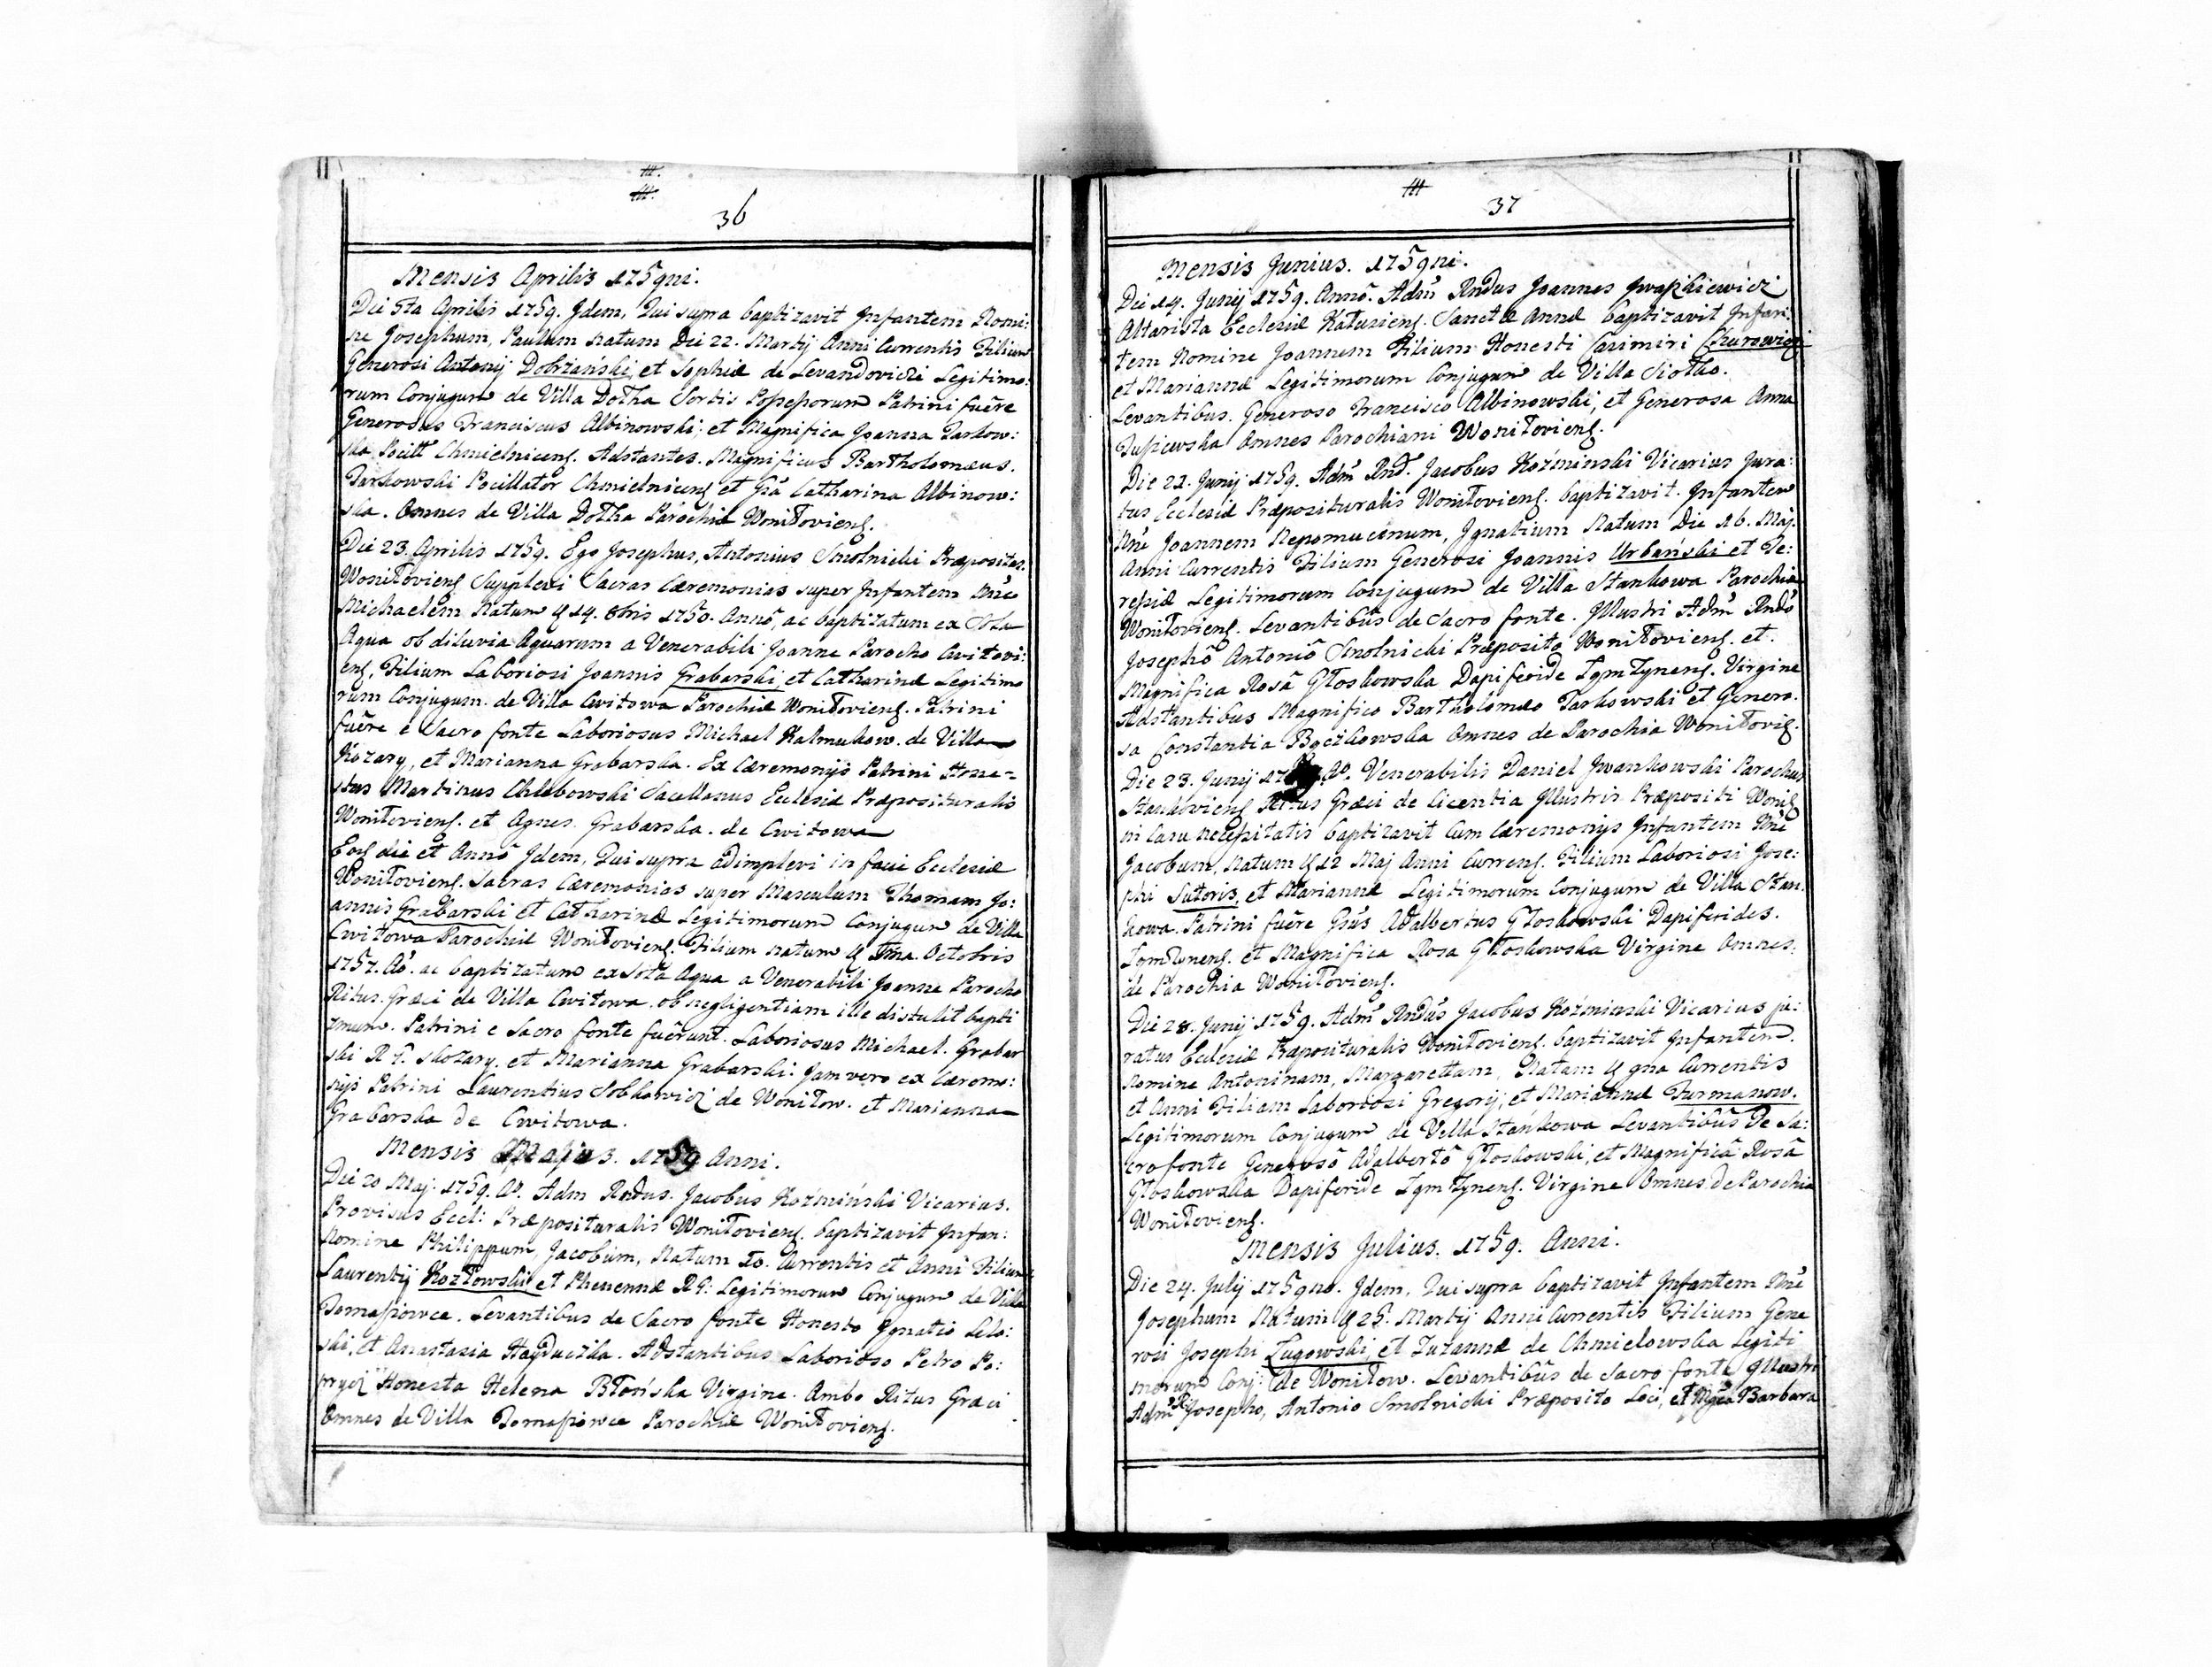 36
Mensis Aprilis 1759ni.
Die 5ta Aprilis 1759. Jdem, Qui supra baptizavit Jnfantem Nomi:
ne Josephum, Paulum natum Die 22. Martij Anni Currentis Filium
Generosi Antonij Dobrzański, et Sophiæ de Levandovicki Legitimo:
rum Conjugum de Villa Dołha Sortis Popeporum Patrini fuêre
Generosus Franciscus Albinowski; et Magnifica Joanna Tarkow:
ska Pocill Chmielniceng. Adstantes. Magnificus Bartholomæus.
Tarkowski Pocillator Chmielniceng et Gsa Catharina Albinow:
ska. Omnes de Villa Dołha Parochiæ Woniłovieng.
Die 23. Aprilis 1759. Ego Josephus, Antonius Smolnicki Præpositus.
Woniłovieng Supplevi Sacras Cæremonias super Jnfantem Nne
Michaelem Natum 14. 8bris 1750. Annô, ac baptizatum ex Sola
Aqua ob diluvia Aquarum a Venerabili Joanne Parocho Cwitovi:
eng, Filium Laboriosi Joannis Grabarski et Catharinæ Legitimo
rum Conjugum. de Villa Cwitowa Parochiæ Woniłovieng. Patrini
fuêre e Sacro fonte Laboriosus Michael Kalmukow. de Villa
Kozary, et Marianna Grabarska. Ex Cæremonijs Patrini Hone-
stus Martinus Chlebowski Sacellanus Ecclesiæ Præposituralis
Woniłovieng. et Agnes Grabarska. de Cwitowa
Eog die et Annô Jdem, Qui supra adimplevi in facie Ecclesiæ
Woniłovieng. Sacras Cæremonias super Masculum Thomam Jo:
annis Grabarski et Catharinæ Legitimorum Conjugum de Villa
Cwitowa Parochiæ Woniłovieng. Filium natum Octobris
1757. Aô. ac baptizatum ex sola Aqua a Venerabili Joanne Parocho
Ritus. Græci de Villa Cwitowa. ob negligentiam ille distulit bapti
zmum. Patrini e Sacro fonte fuêrunt. Laboriosus Michael. Grabar
ski R G. Kozary. et Marianna Grabarski: Jam vero ex Cæremo:
nijs Patrini Laurentius Sobkowicz de Woniłow. et Marianna
Grabarska de Cwitowa.
Mensis Majus. 1759 Anni.
Die 20 Maj. 1759. Aô. Adm Rndus. Jacobus Koźmiński Vicarius.
Provisus Eccl: Præposituralis Woniłovieng. baptizavit Jnfan:
Nomine Philippum, Jacobum, Natum 10. Currentis et Anni Filium
Laurentij Kozłowski et Phenennæ R G: Legitimorum Conjugum de Villa
Tomaszowce. Levantibus de Sacro fonte Honesto Jgnatio Lelo:
ski, et Anastasia Hayduczka. Adstantibus Laborioso Petro Po:
Honesta Helena Błońska Virgine. Ambo Ritus Græci
Omnes de Villa Tomaszowce Parochiæ Woniłovieng.
37
Mensis Junius. 1759ni.
Die 14. Junij 1759. Annô. Adm Rndus Joannes Jwaszkiewicz
Altarista Ecclesiæ Katusieng. Sanctæ Annæ baptizavit Jnfan:
tem Nomine Joannem Filium Honesti Casimiri Churowicz
et Mariannæ Legitimorum Conjugum de Villa Siołko.
Levantibus. Generoso Francisco Albinowski, et Generosa Anna
Tuszewska Omnes Parochiani Woniłovieng.
Die 22. Junij 1759. Adm Rnd. Jacobus Koźminski Vicarius Jura:
tus Ecclesiæ Præposituralis Woniłovieng. baptizavit. Jnfantem
Nne Joannem Nepomucenum, Jgnatium Natum Die 16. Maj.
Anni Currentis Filium Generosi Joannis Urbański et Te:
ressiæ Legitimorum Conjugum de Villa Stankowa Parochiæ
Woniłovieng. Levantibus de Sacro fonte. Jllustri Adm Rndo
Josephô Antoniô Smolnicki Præposito Woniłovieng. et.
Magnifica Rosâ Głoskowska Dapiferide Tgmłyneng. Virgine
Adstantibus Magnifico Bartholomæo Tarkowski et Genero.
sa Constantia Bączkowska Omnes de Parochia Woniłovig.
Die 23. Junij Aô. Venerabilis Daniel Jwankowski Parochus
Stankovieng Ritus Græci de licentia Jllustris Præpositi Wonig
in Casu necessitatis baptizavit Cum Cæremonijs Jnfantem Nne
Jacobum, Natum 12 Maj Anni Curreng. Filium Laboriosi Jose:
phi Sutoris, et Mariannæ Legitimorum Conjugum de Villa Stan.
kowa. Patrini fuêre Gsus Adalbertus Głoskowski Dapiferides.
Tgmłyneng. et Magnifica Rosa Głoskowska Virgine Omnes.
de Parochia Woniłovieng.
Die 28. Junij 1759. Adm Rndus Jacobus Koźminski Vicarius ju:
ratus Ecclesiæ Præposituralis Woniłovieng. baptizavit Jnfantem.
Nomine Antoninam, Margarettam, Natam 9na Currentis
et Anni Filiam Laboriosi Gregorij, et Mariannæ Furmanow.
Legitimorum Conjugum de Villa Stańkowa Levantibus De Sa:
cro fonte Generosô Adalbertô Głoskowski, et Magnificâ Rosâ
Głoskowska Dapiferide Tgmłyneng. Virgine Omnes de Parochia
Woniłovieng.
Mensis Julius. 1759. Anni.
Die 24. Julij 1759no. Jdem, Qui supra baptizavit Jnfantem Nne
Josephum Natum 25. Martij Anni Currentis Filium Gene
rosi Josephi Ługowski, et Zuzannæ de Chmielowska Legiti
morum Conj: de Woniłow. Levantibus de Sacro fonte Jllustri
Adm R Josepho, Antonio Smolnicki Præposito Loci, et Mgca Barbara